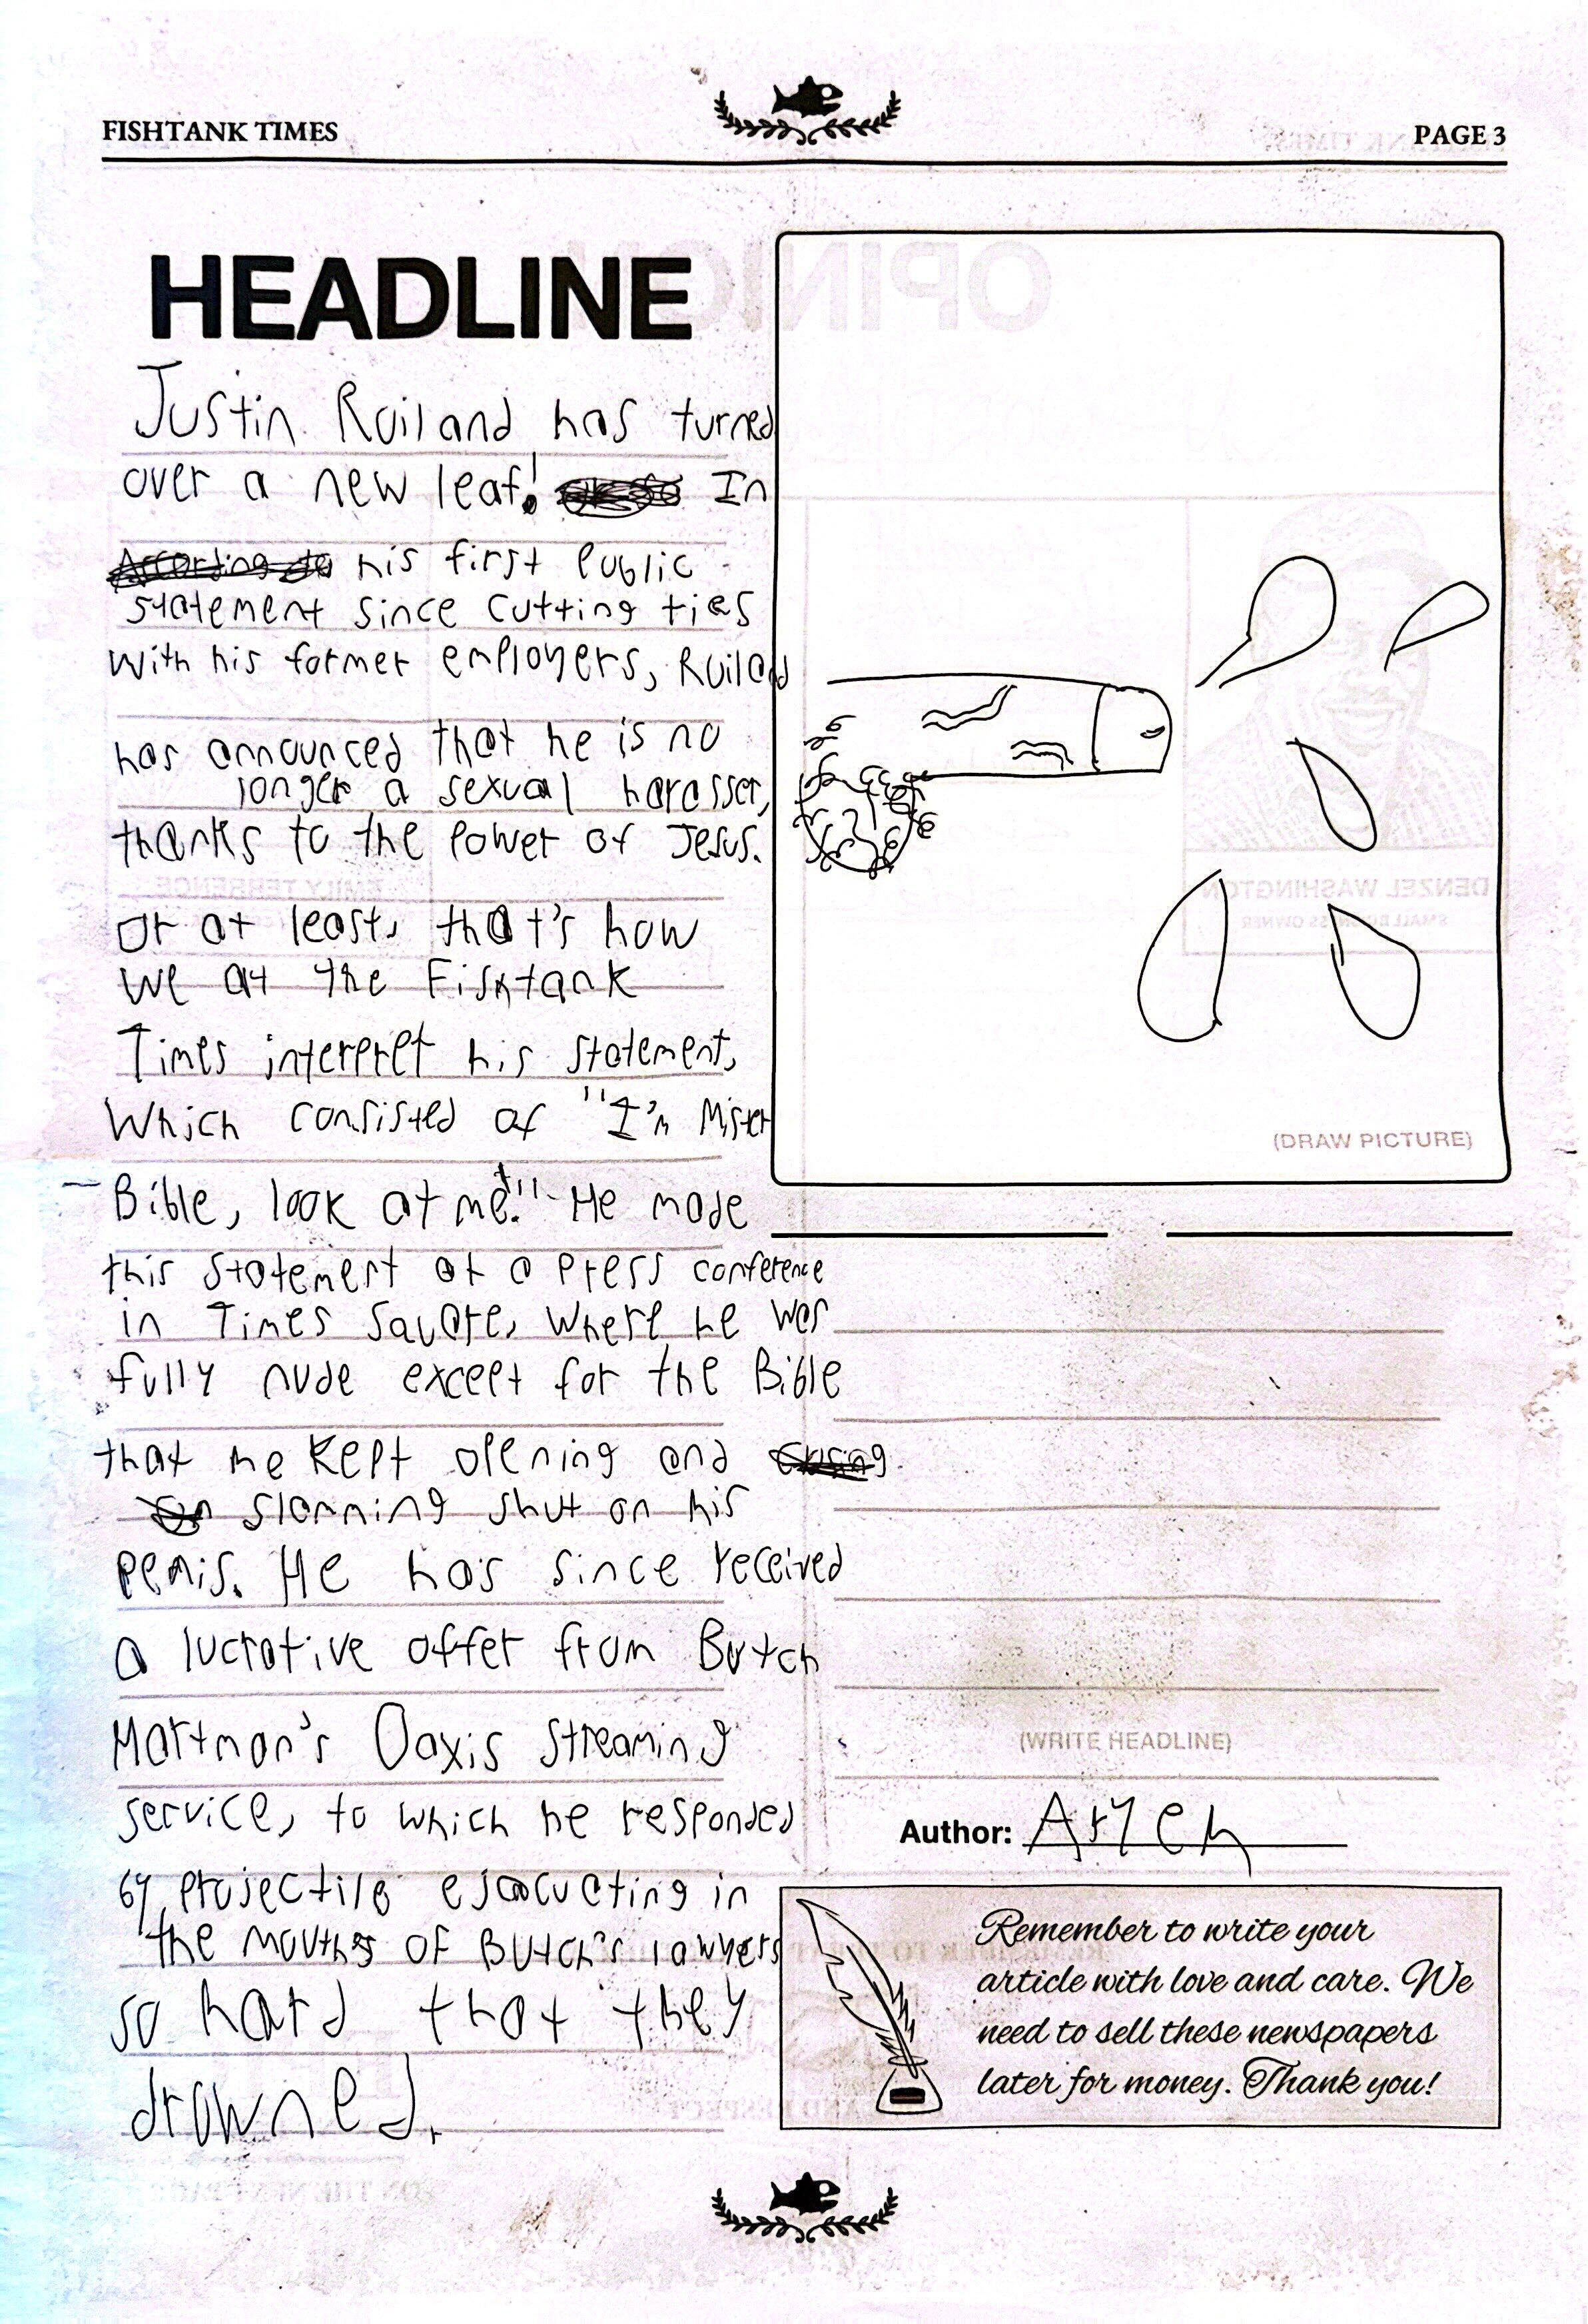 FISHTANK TIMES
PAGE 3
HEADLINE
Justin Roiland has turned
over a new leaf! In
According to his first public
statement since cutting ties
with his former employers, Roiland
has announced that he is no
longer a sexual harasser,
thanks to the power of Jesus.
Or at least, that's how
we at the Fishtank
Times interpret his statement,
Which consisted of "I'm Mister
Bible, look at me!" He made
this statement at a press conference
in Times Square, where he was
fully nude except for the Bible
that he kept opening and closing
on slamming shut on his
penis. He has since received
a lucrative offer from Butch
Hartman's Oaxis streaming
service, to which he responded
by projectile ejaculating in
the mouths of Butch's lawyers
so hard that they
drowned.
(DRAW PICTURE)
(WRITE HEADLINE)
Author: Aryeh
Remember to write your
article with love and care. We
need to sell these newspapers
later for money. Thank you!
OPINION
EMILY TERRENCE
DENZEL WASHINGTON
SMALL BUSINESS OWNER